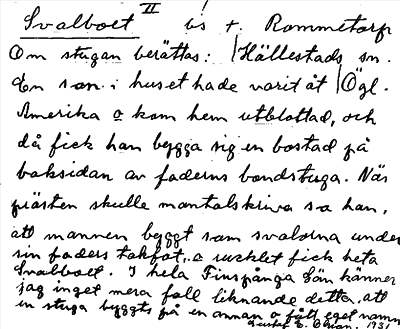 Svalboet II bs t. Rommetorp
Om stugan berättas: Hällestads sn.
En son i huset hade varit åt Ögl.
Amerika o kom hem utblottad, och
då fick han bygga sig en bostad på
baksidan av faderns bondstuga. När
prästen skulle mantalskriva sa han,
att mannen byggt som svalorna under
sin faders takfot, o rucklet fick heta
Svalboet. I hela Finspånga län känner
jag inget mera fall liknande detta, att
en stuga byggts på en annan o fått eget namn
Gustaf E. 1931